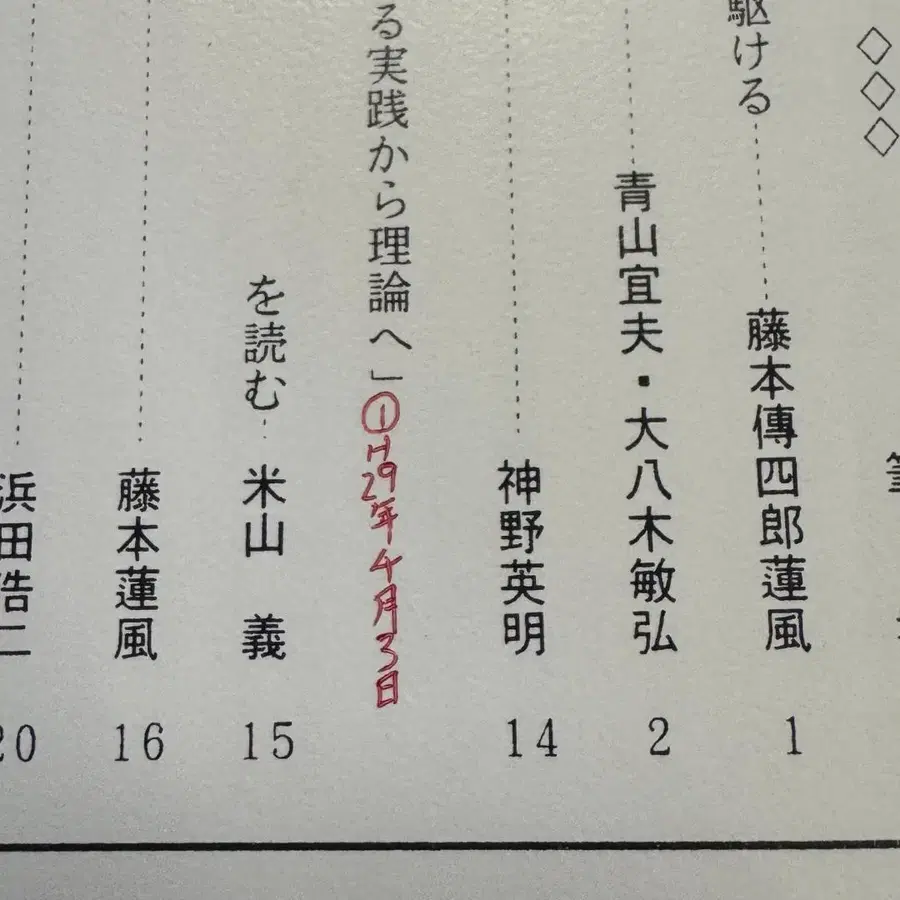 ◇◇◇
駆ける 藤本傳四郎蓮風 1
青山宜夫・大八木敏弘 2
神野英明 14
る実践から理論へ」①H29年4月3日
を読む 米山 義 15
藤本蓮風 16
浜田浩二 20